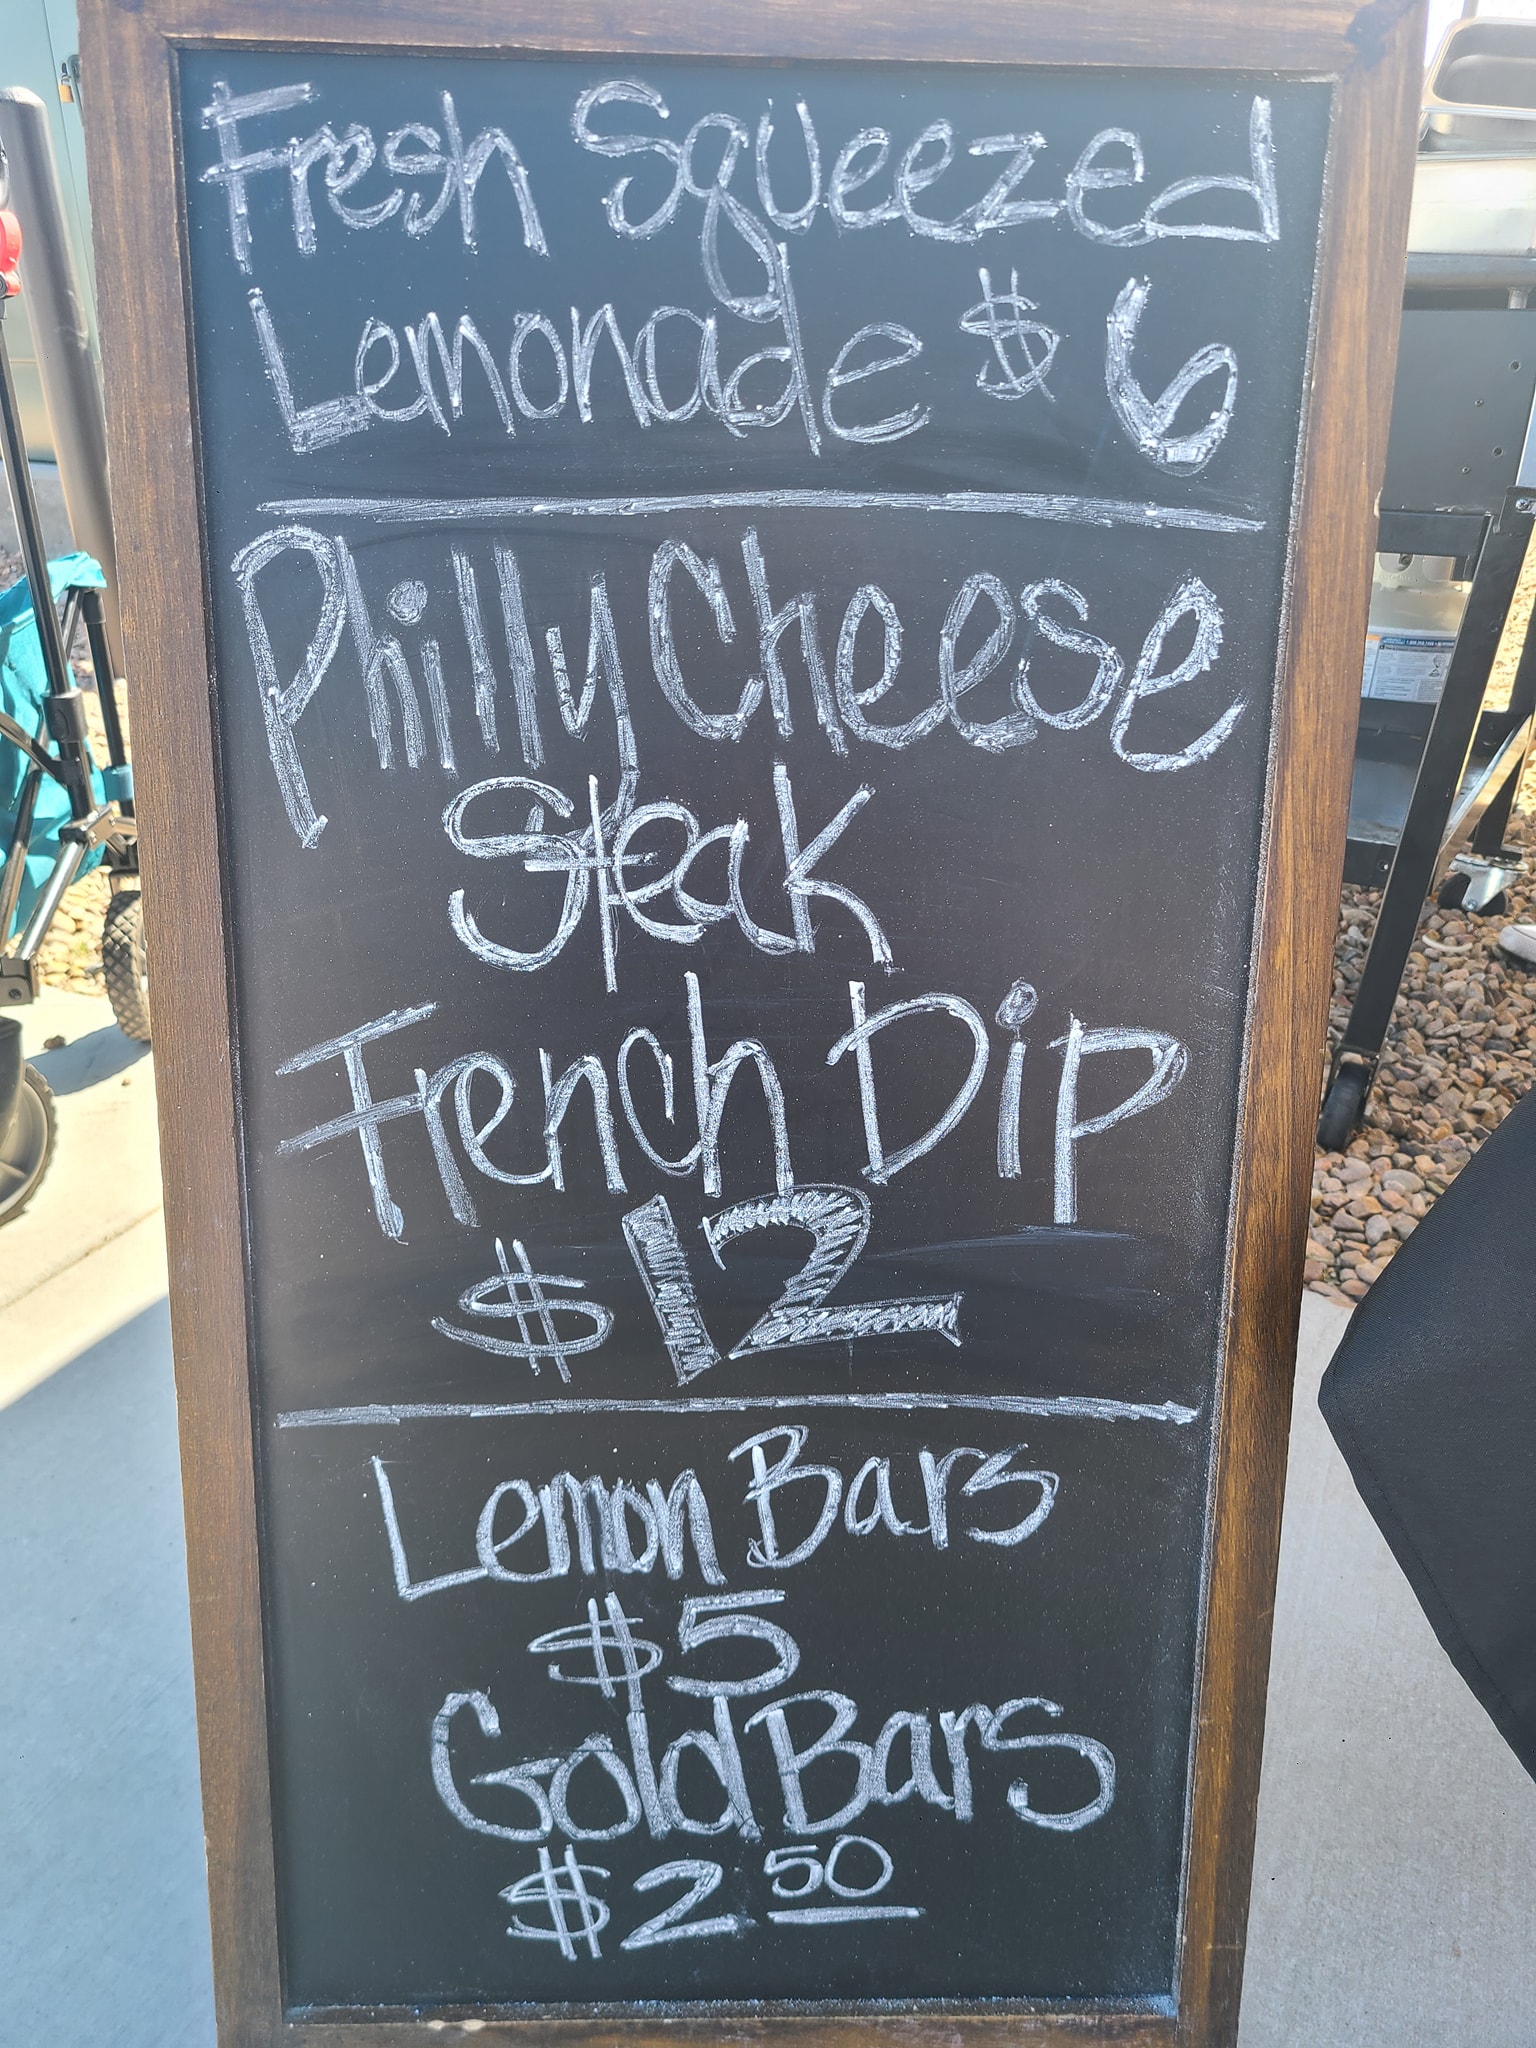 Fresh Squeezed
Lemonade $6
Philly Cheese
Steak
French Dip
$12
Lemon Bars
$5
Gold Bars
$2 50